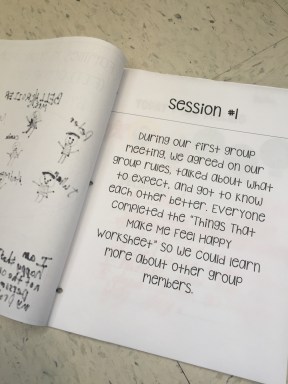 Session #1
During our first group
meeting, we agreed on our
group rules, talked about what
to expect, and got to know
each other better. Everyone
completed the "Things That
Make Me Feel Happy
Worksheet" so we could learn
more about other group
members.